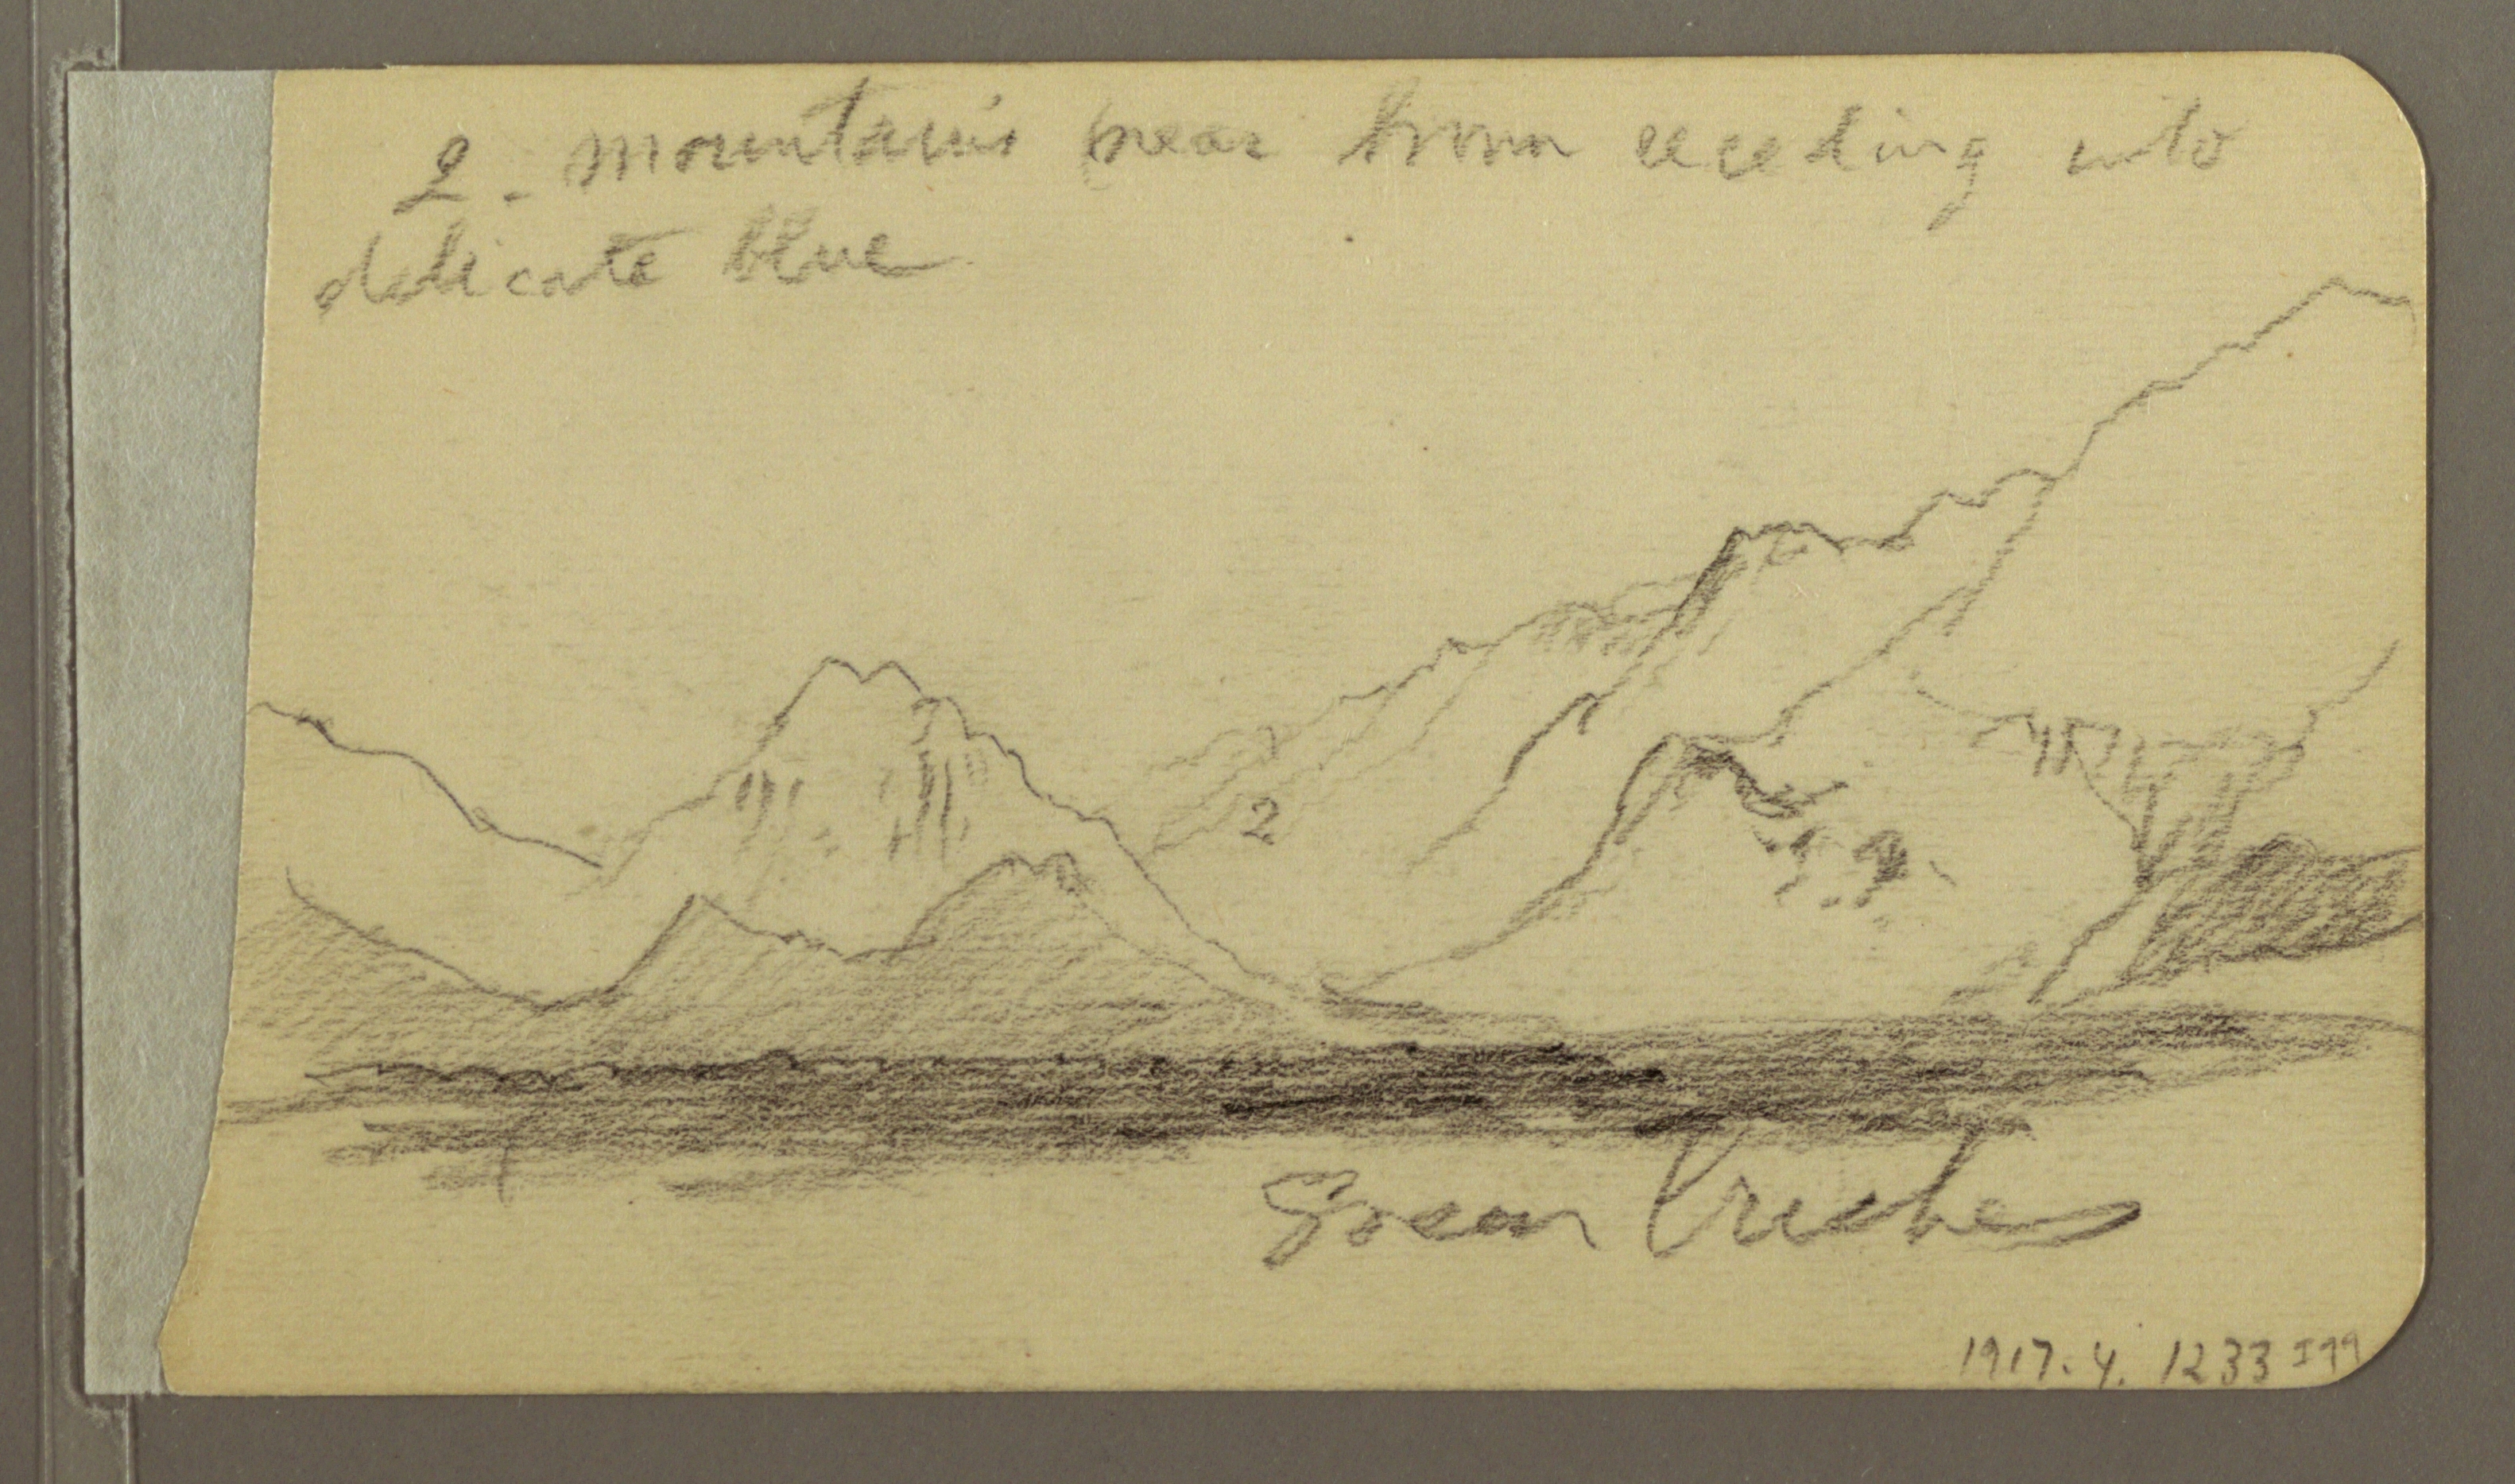 2 - mountains near brown receding into
delicate blue
2
Green bushes
1917. 4. 1233